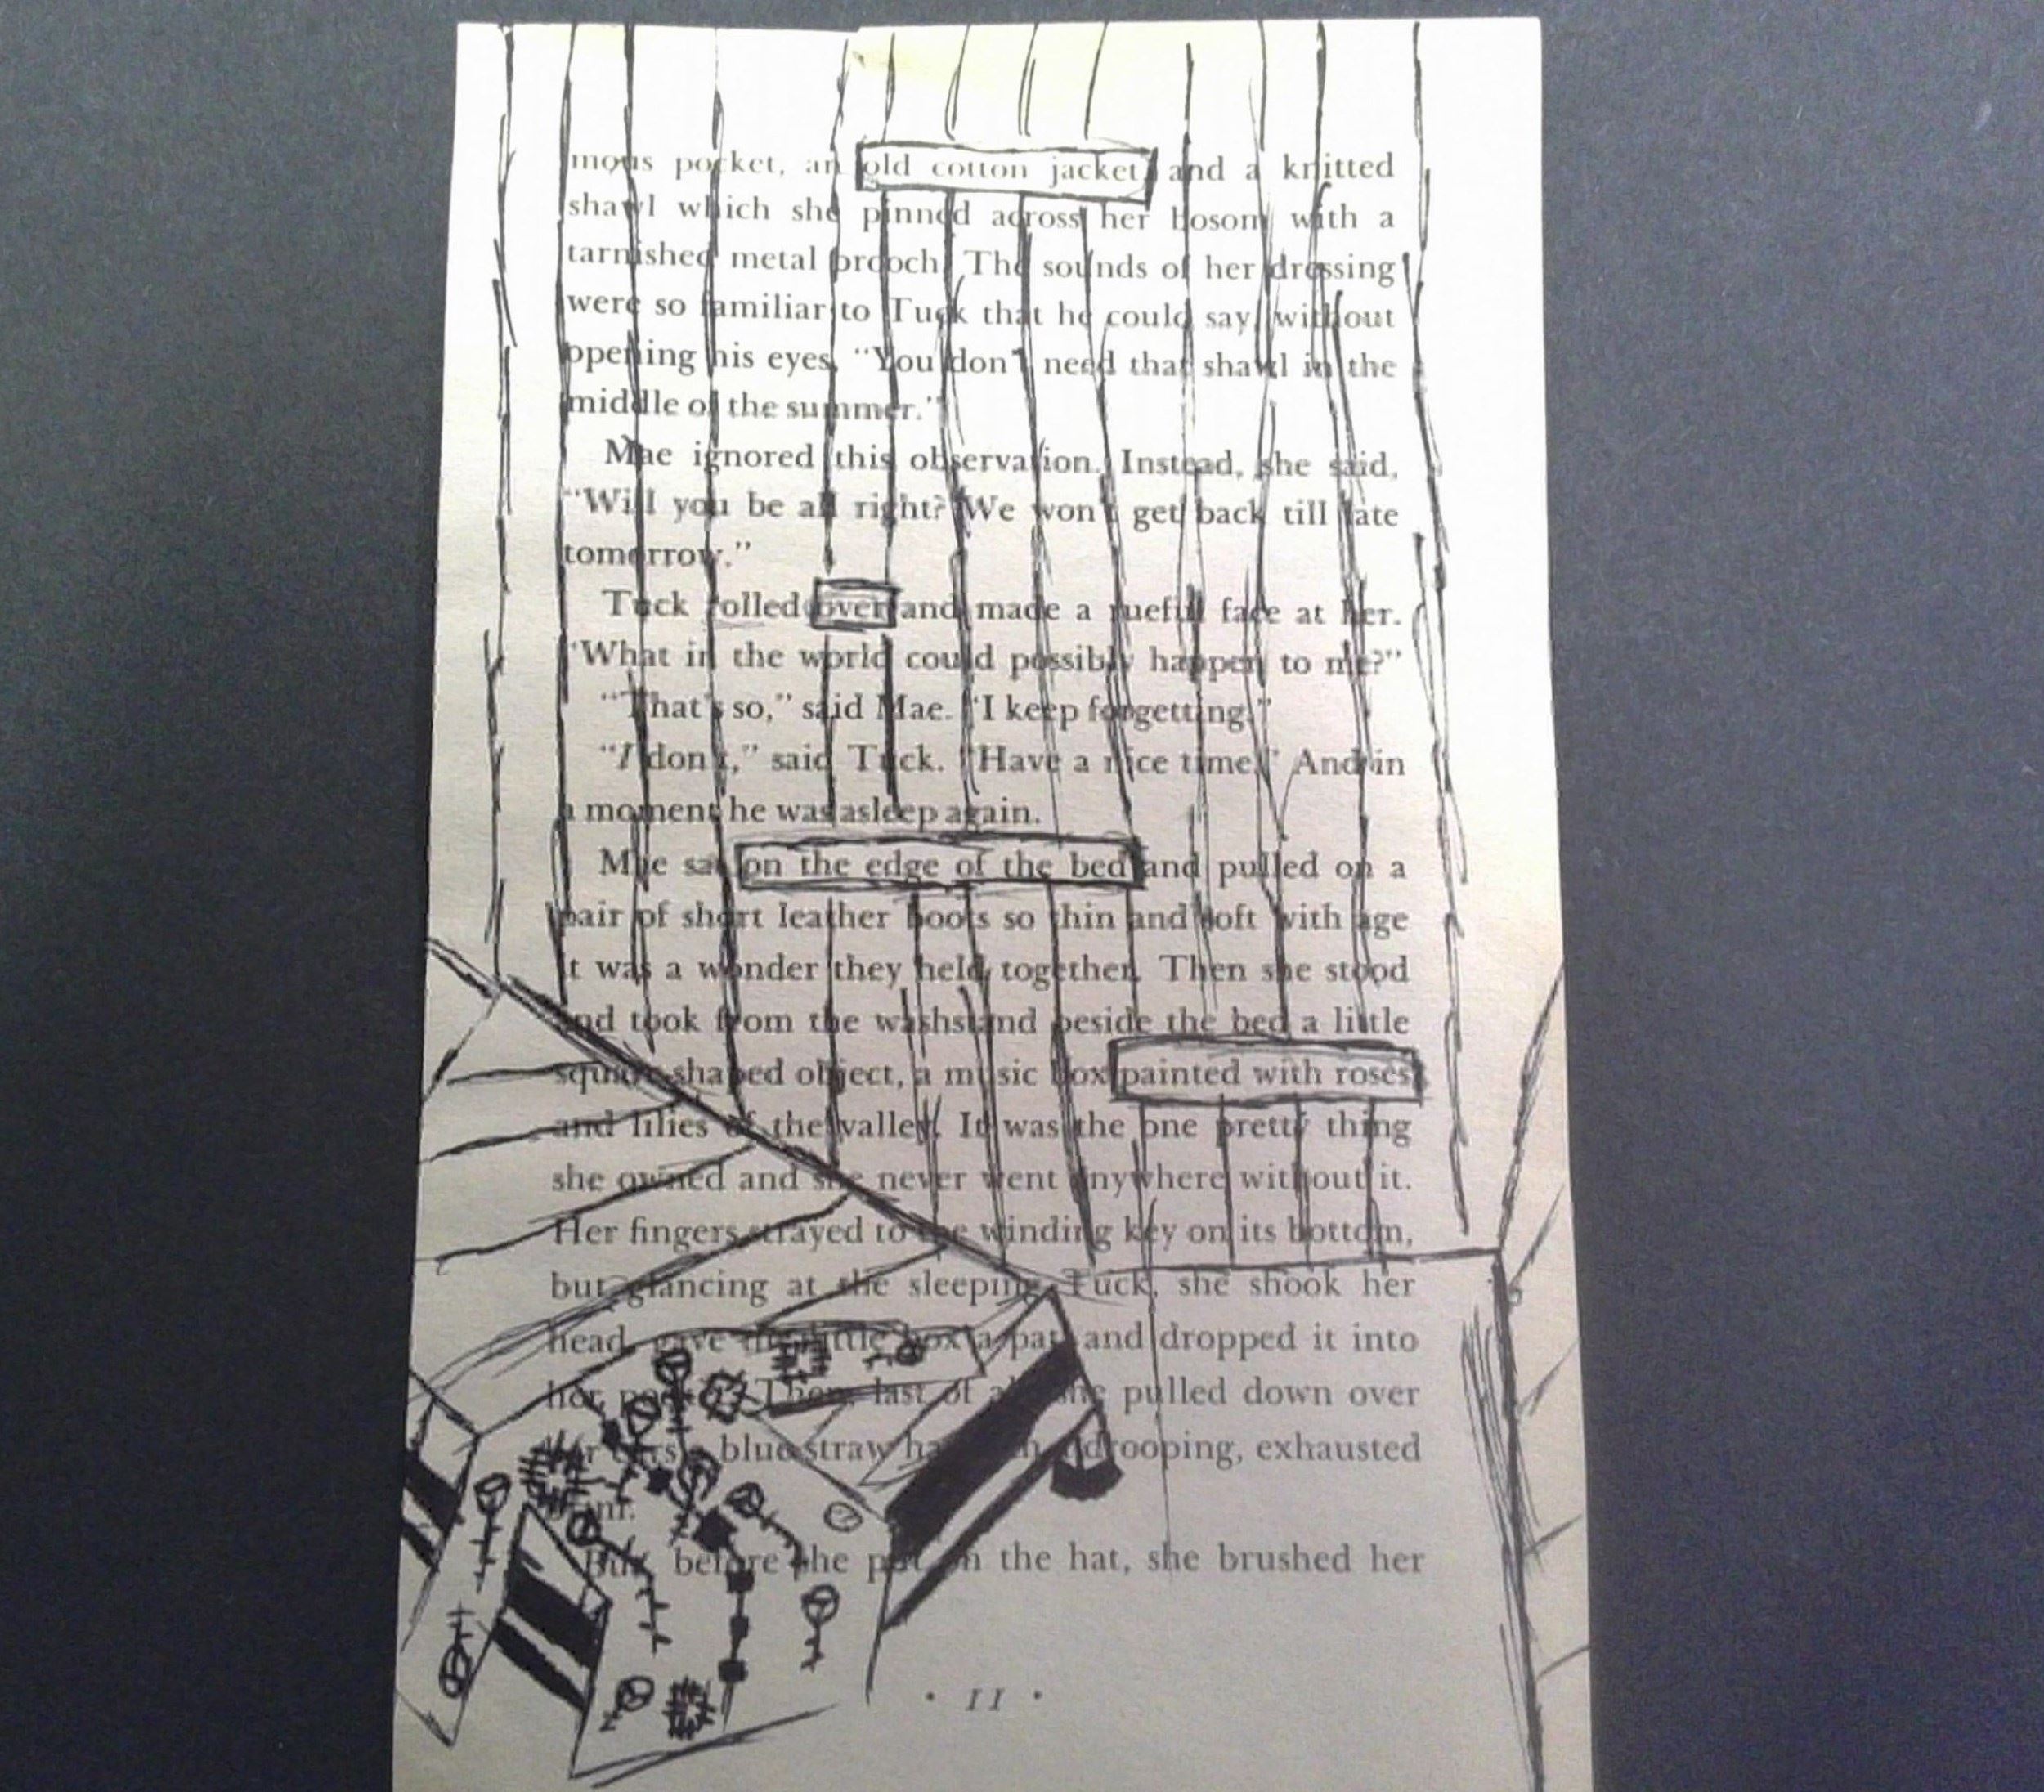 mous pocket, an old cotton jacket, and a knitted
shawl which she pinned across her bosom with a
tarnished metal brooch. The sounds of her dressing
were so familiar to Tuck that he could say, without
opening his eyes, “You don't need that shawl in the
middle of the summer.”
Mae ignored this observation. Instead, she said,
“Will you be all right? We won't get back till late
tomorrow.”
Tuck rolled over and made a rueful face at her.
“What in the world could possibly happen to me?”
“That's so,” said Mae. “I keep forgetting.”
“I don't,” said Tuck. “Have a nice time.” And in
a moment he was asleep again.
Mae sat on the edge of the bed and pulled on a
pair of short leather boots so thin and soft with age
it was a wonder they held together. Then she stood
and took from the washstand beside the bed a little
square-shaped object, a music box painted with roses
and lilies of the valley. It was the one pretty thing
she owned and she never went anywhere without it.
Her fingers strayed to the winding key on its bottom,
but glancing at the sleeping Tuck, she shook her
head, gave the little box a pat, and dropped it into
her pocket. Then, last of all, she pulled down over
her ears a blue straw hat with a drooping, exhausted
brim.
But, before she put on the hat, she brushed her
• 11 •